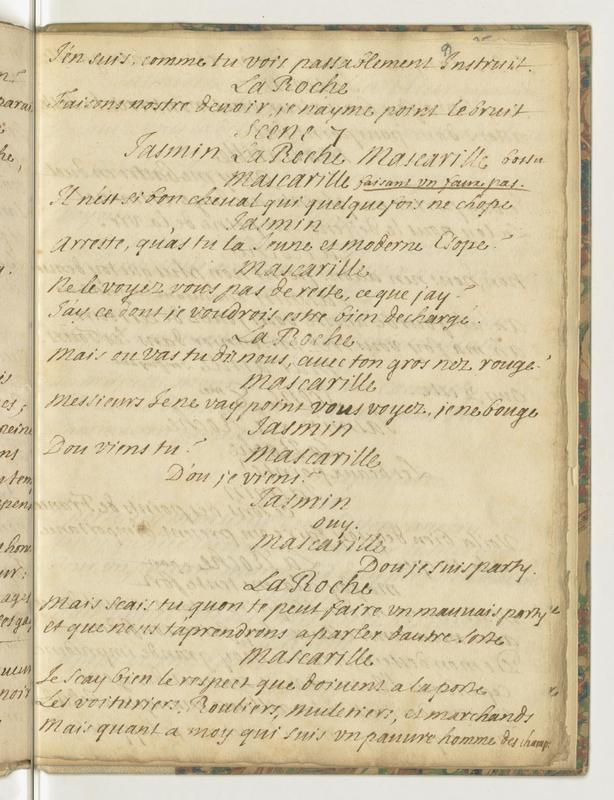 J'en suis, comme tu vois passablement Instruit.
La Roche
Faisons nostre devoir, je nayme point le bruit
Scene 7
Jasmin La Roche Mascarille bossu
Mascarille faisant un faux pas.
Il n'est si bon cheval qui quelquefois ne chope
Jasmin
Arreste, qu'as tu la Jeune et moderne Esope?
Mascarille
Ne le voyez vous pas de reste, ce que jay?
J'ay ce dont je voudrois estre bien dechargé.
La Roche
Mais ou vas tu dis nous, avec ton gros nez rouge?
Mascarille
Messieurs Je ne vay point vous voyez, je ne bouge
Jasmin
Dou viens tu?
Mascarille
D'ou je viens?
Jasmin
ouy.
Mascarille
Dou je suis party.
La Roche
Mais scais tu quon te peut faire un mauvais party
et que nous taprendrons a parler dautre sorte
Mascarille
Je scay bien le respect que doivent a la porte
Les voituriers, Rouliers, muletiers, et marchands
Mais quant a moy qui suis un pauvre homme des champs